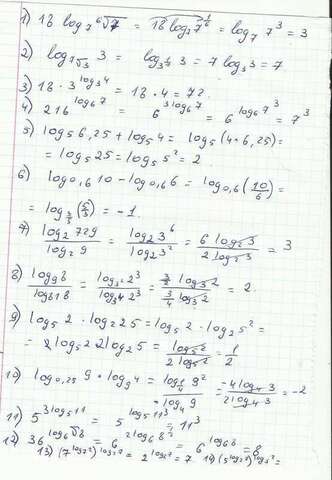 1) 18 log₇ ⁶√7 = 18 log₇ 7^(1/6) = log₇ 7³ = 3
2) log ₇√3 3 = log 3^(1/7) 3 = 7 log₃ 3 = 7
3) 18 · 3^(log₃4) = 18 · 4 = 72.
4) 216^(log₆7) = 6^(3log₆7) = 6^(log₆7³) = 7³
5) log₅ 6,25 + log₅ 4 = log₅(4*6,25) =
= log₅ 25 = log₅ 5² = 2
6) log₀,₆ 10 - log₀,₆ 6 = log₀,₆ (10/6) =
= log 3/5 (5/3) = -1.
7) log₂ 729 / log₂ 9 = log₂ 3⁶ / log₂ 3² = 6 log₂ 3 / 2 log₂ 3 = 3
8) log₉ 8 / log₈₁ 8 = log₃² 2³ / log₃⁴ 2³ = 3/2 log₃ 2 / 3/4 log₃ 2 = 2.
9) log₅ 2 · log₂ 25 = log₅ 2 · log₂ 5² =
= 2 log₅ 2 log₂ 5 = log₅ 2 / 2 log₅ 2 = 1/2
10) log₀,₂₅ 9 * log₉ 4 = log 1/4 9² / log₄ 9 = -4 log₄ 3 / 2 log₄ 3 = -2
11) 5^(3log₅11) = 5^(log₅11³) = 11³
12) 36^(log₆√8) = 6^(2log₆8^) = 6^(log₆8) = 8
13) (7^(log₇2))^(log₂7) = 2^(log₂7) = 7 14) (5^(log₅2))^(log₂5) =